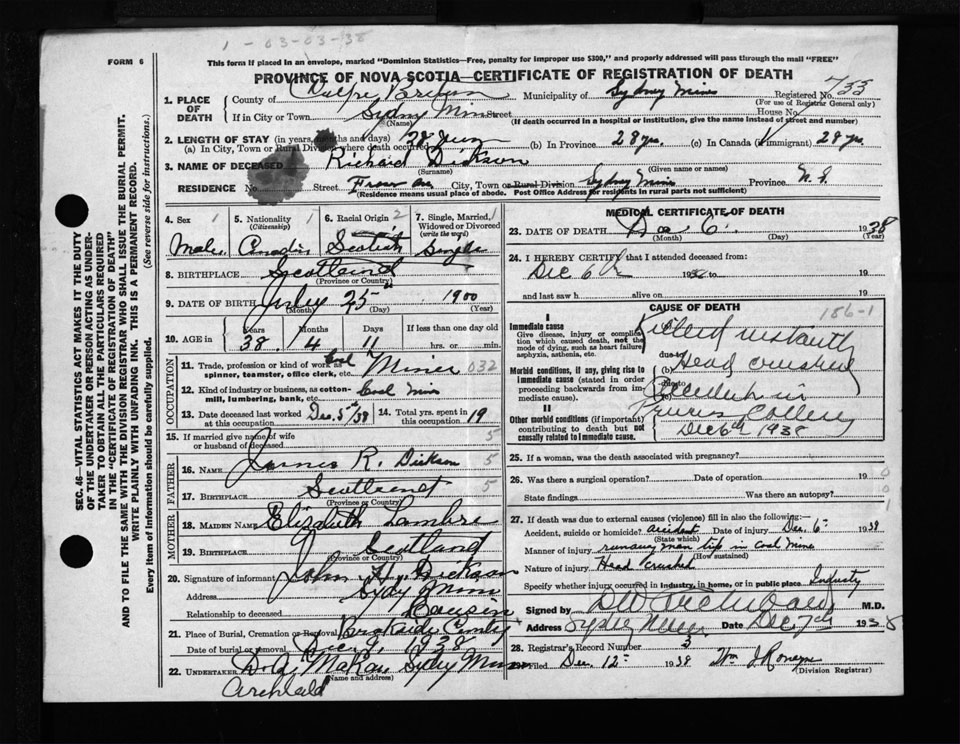 1-03-03-38
FORM 6
This form if placed in an envelope, marked "Dominion Statistics—Free, penalty for improper use $300," and properly addressed will pass through the mail "FREE"
PROVINCE OF NOVA SCOTIA—CERTIFICATE OF REGISTRATION OF DEATH
1. PLACE OF DEATH
County of Cape Breton Municipality of Sydney Mines Registered No. 733
(For use of Registrar General only)
If in City or Town Sydney Mines Street House No.
(Name) (If death occurred in a hospital or institution, give the name instead of street and number)
2. LENGTH OF STAY (in years, months and days)
(a) In City, Town or Rural Division where death occurred 28 years (b) In Province 28 yrs. (c) In Canada (if immigrant) 28 yrs.
3. NAME OF DECEASED Richard Dickson
(Surname) (Given name or names)
RESIDENCE No. Street City, Town or Rural Division Sydney Mines Province N.S.
(Residence means usual place of abode. Post Office Address for residents in rural parts not sufficient)
4. Sex 1
Male
5. Nationality 1
(Citizenship)
Canadian
6. Racial Origin 2
Scotish
7. Single, Married, Widowed or Divorced 1
(write the word)
Single
8. BIRTHPLACE Scotland
(Province or Country)
9. DATE OF BIRTH July 25 1900
(Month) (Day) (Year)
10. AGE in Years Months Days If less than one day old
38 4 11 hrs. or min.
OCCUPATION
11. Trade, profession or kind of work as spinner, teamster, office clerk, etc. Coal Miner 032
12. Kind of industry or business, as cotton-mill, lumbering, bank, etc. Coal Mine
13. Date deceased last worked at this occupation Dec. 5th/38
14. Total yrs. spent in this occupation 19
15. If married give name of wife or husband of deceased 5
FATHER
16. NAME James R. Dickson 5
17. BIRTHPLACE Scotland 5
(Province or Country)
MOTHER
18. MAIDEN NAME Elizabeth
19. BIRTHPLACE Scotland
(Province or Country)
20. Signature of informant John Hy. Dickson
Address Sydney Mines
Relationship to deceased Cousin
21. Place of Burial, Cremation or Removal Brookside Cemetery
Date of burial or removal Dec 9, 1938
22. UNDERTAKER Sydney Mines
(Name and address)
Archibald
MEDICAL CERTIFICATE OF DEATH
23. DATE OF DEATH Dec 6 1938
(Month) (Day) (Year)
24. I HEREBY CERTIFY that I attended deceased from:
Dec 6th 1938 to 19
and last saw h alive on 19
CAUSE OF DEATH 186-1
I
Immediate cause
Give disease, injury or complication which caused death, not the mode of dying, such as heart failure, asphyxia, asthenia, etc.
Killed instantly
Morbid conditions, if any, giving rise to immediate cause (stated in order proceeding backwards from immediate cause).
due to (b) Head crushed
due to Accident in
II
Other morbid conditions (if important) contributing to death but not causally related to immediate cause.
Princess Colliery
Dec 6th 1938
25. If a woman, was the death associated with pregnancy?
26. Was there a surgical operation? Date of operation 19
State findings Was there an autopsy?
27. If death was due to external causes (violence) fill in also the following:—
Accident, suicide or homicide? accident Date of injury Dec. 6th 1938
(State which)
Manner of injury runaway man trip in coal mine
(How sustained)
Nature of injury Head crushed
Specify whether injury occurred in Industry, in home, or in public place Industry
Signed by D W Archibald M.D.
Address Sydney Mines Date Dec 7th 1938
28. Registrar's Record Number 3
Filed Dec. 12th 1938
(Division Registrar)
SEC. 46—VITAL STATISTICS ACT MAKES IT THE DUTY
OF THE UNDERTAKER OR PERSON ACTING AS UNDER-
TAKER TO OBTAIN ALL THE PARTICULARS REQUIRED
IN THE "CERTIFICATE OF REGISTRATION OF DEATH"
AND TO FILE THE SAME WITH THE DIVISION REGISTRAR WHO SHALL ISSUE THE BURIAL PERMIT.
WRITE PLAINLY WITH UNFADING INK. THIS IS A PERMANENT RECORD.
Every item of Information should be carefully supplied. (See reverse side for instructions.)